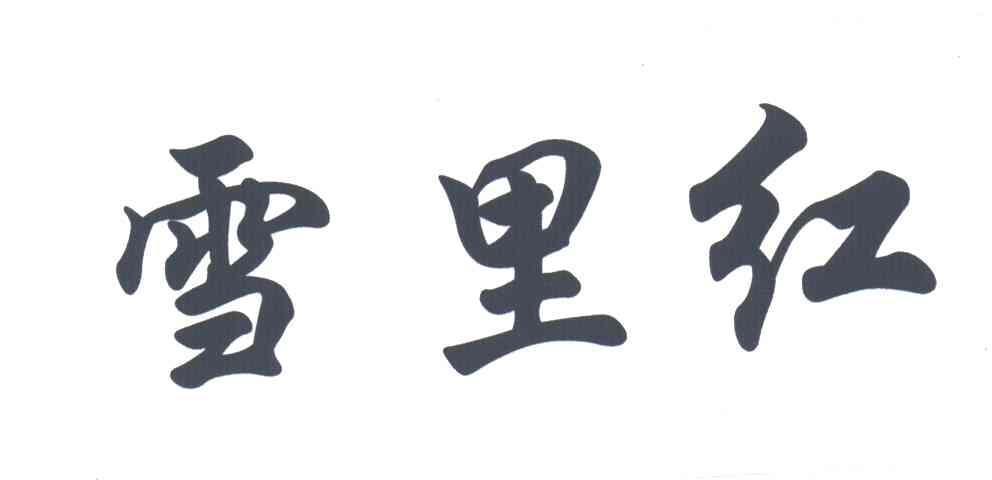 雪里红